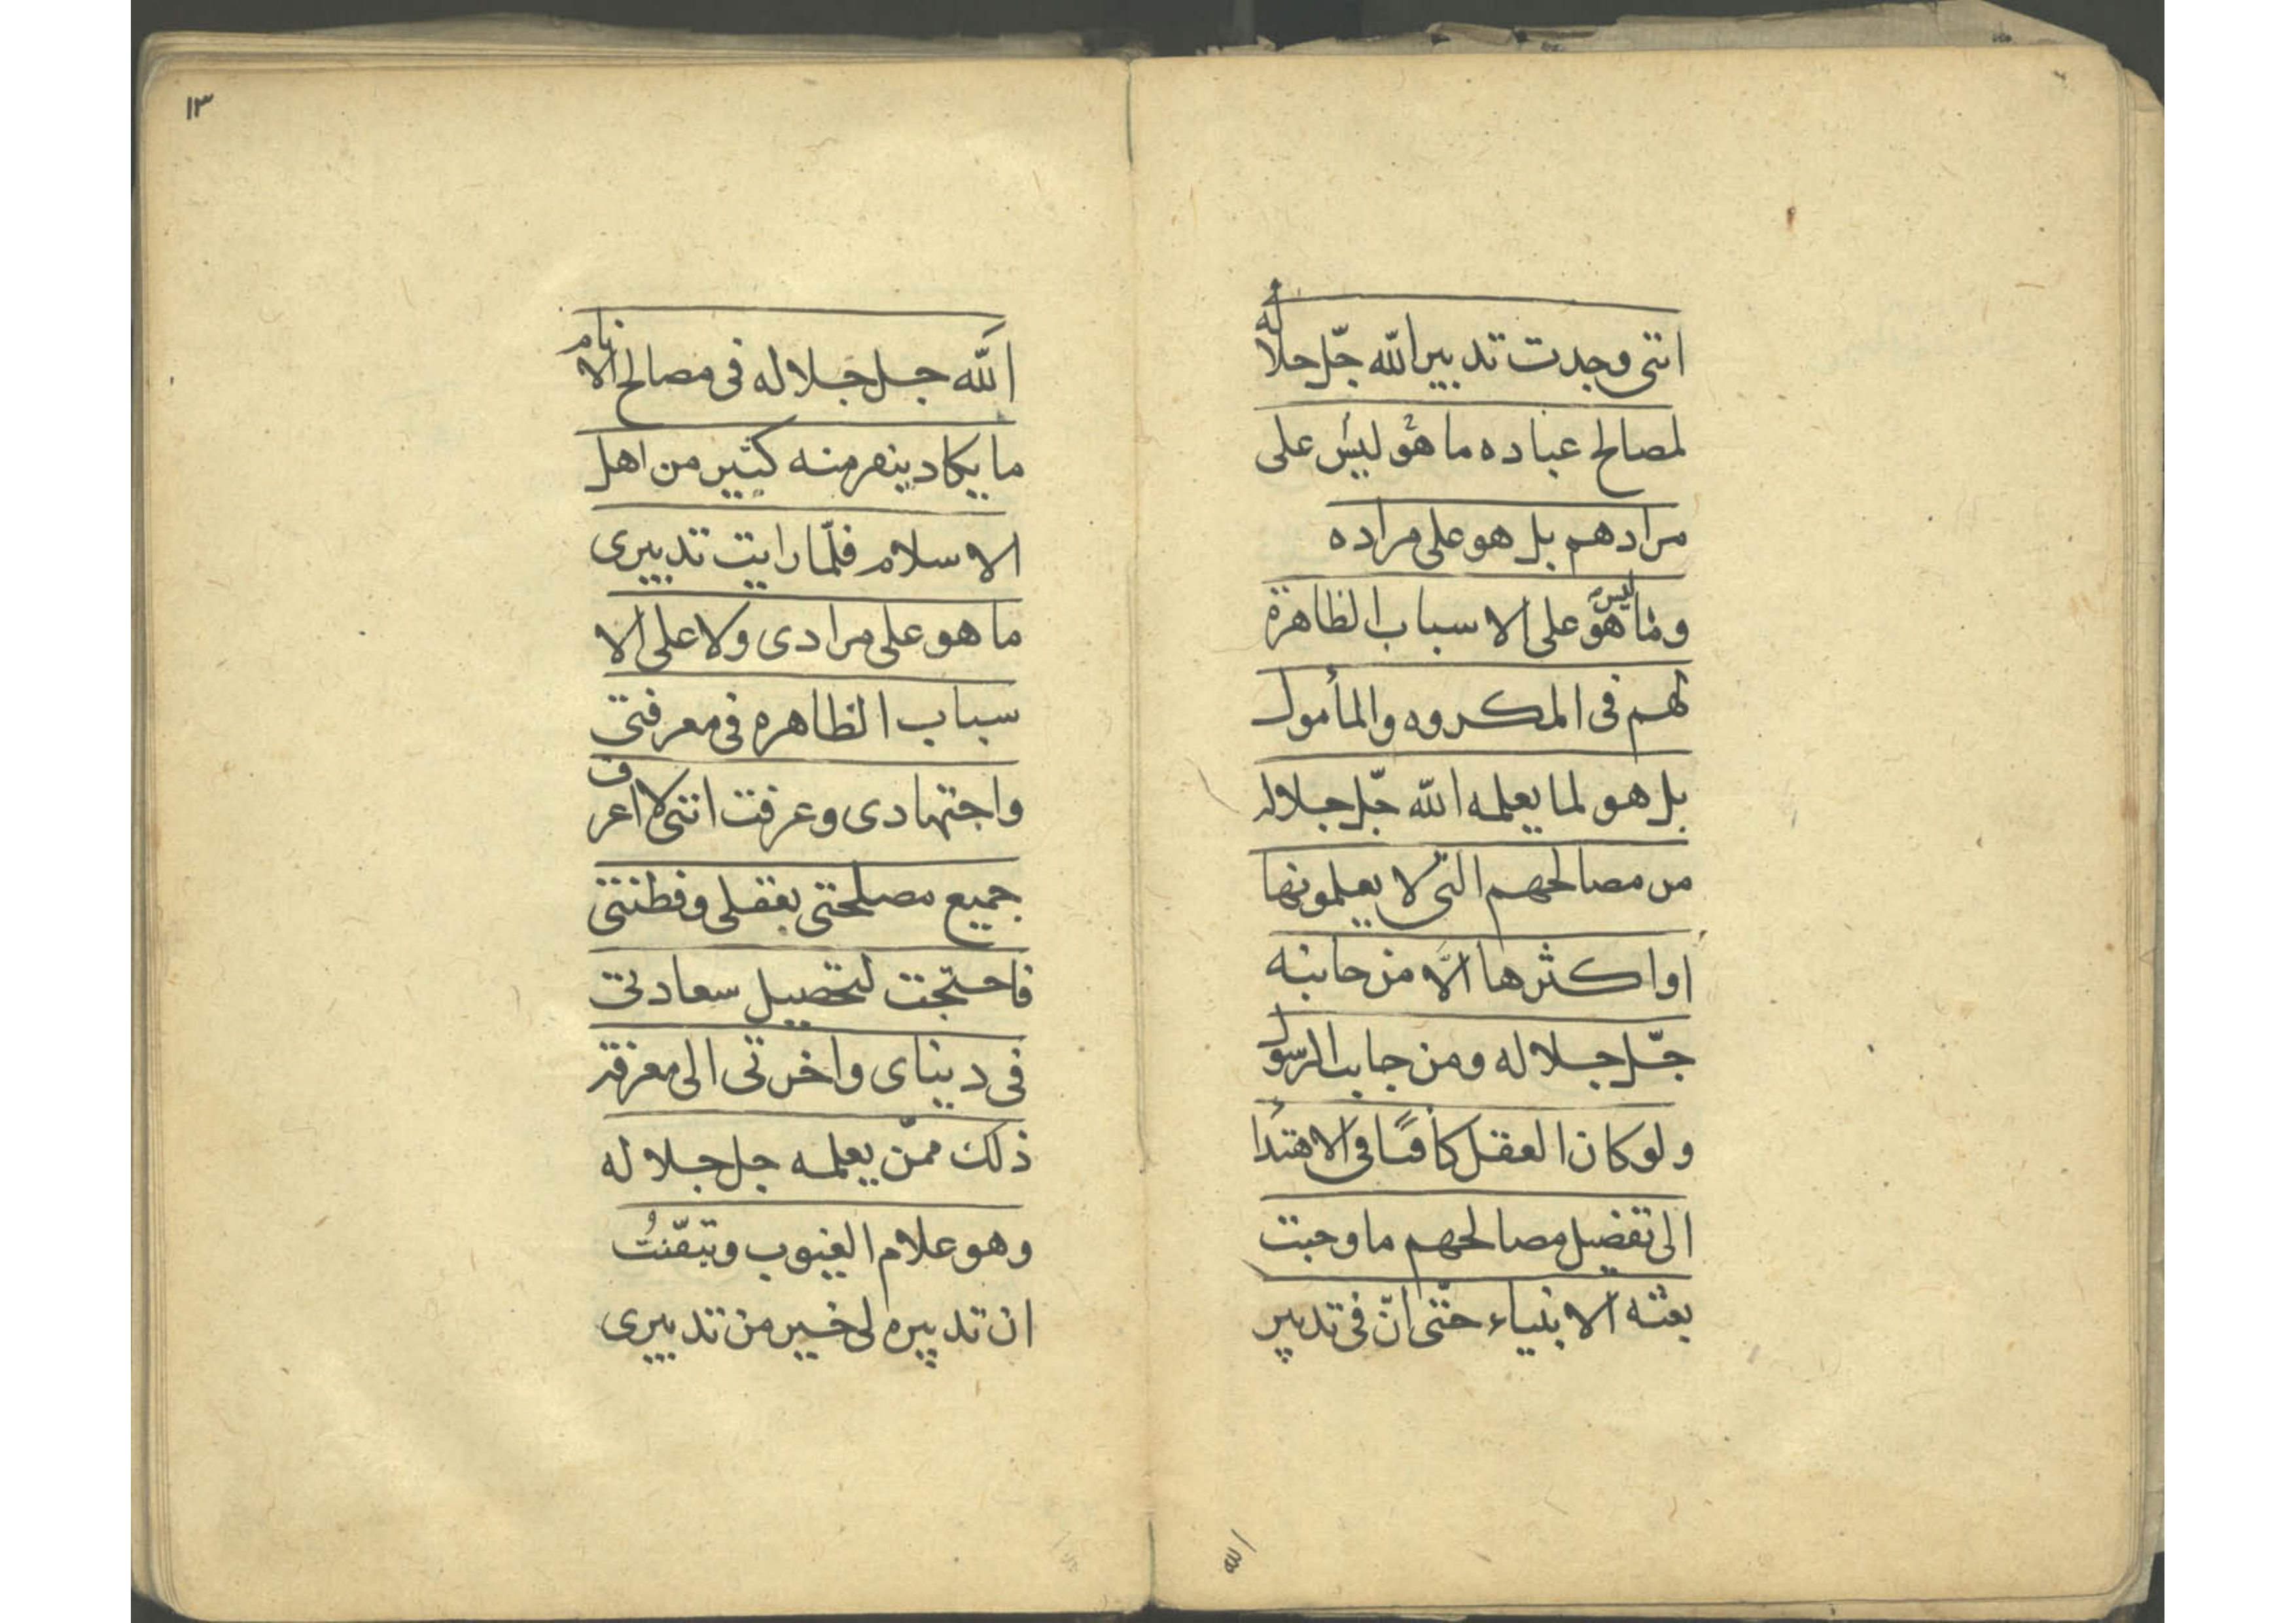 اننی وجدت تدبیر الله جلّ جلاله فی
لمصالح عباده ما هو لیس علی
مرادهم بل هو علی مراده
وما لیس هو علی الاسباب الظاهرة
لهم فی المکروه والمأمول
بل هو لما یعلمه الله جلّ جلاله
من مصالحهم التی لا یعلمونها
او اکثرها الّا من جانبه
جلّ جلاله ومن جانب الرسول
ولو کان العقل کافیًا فی الاهتداء
الی تفضیل مصالحهم ما وجبت
بعثه الانبیاء حتّی انّ فی تدبیر
الله
١٣
الله جل جلاله فی مصالح الانام
ما یکاد ینفر منه کثیر من اهل
الاسلام فلمّا رایت تدبیری
ما هو علی مرادی ولا علی الا
سباب الظاهره فی معرفتی
واجتهادی وعرفت اننی لا اعرف
جمیع مصلحتی بعقلی وفطنتی
فاحتجت لتحصیل سعادتی
فی دینای واخرتی الی معرفة
ذلک ممّن یعلمه جل جلاله
وهو علام الغیوب وتیقّنتُ
ان تدبیره لی خیر من تدبیری